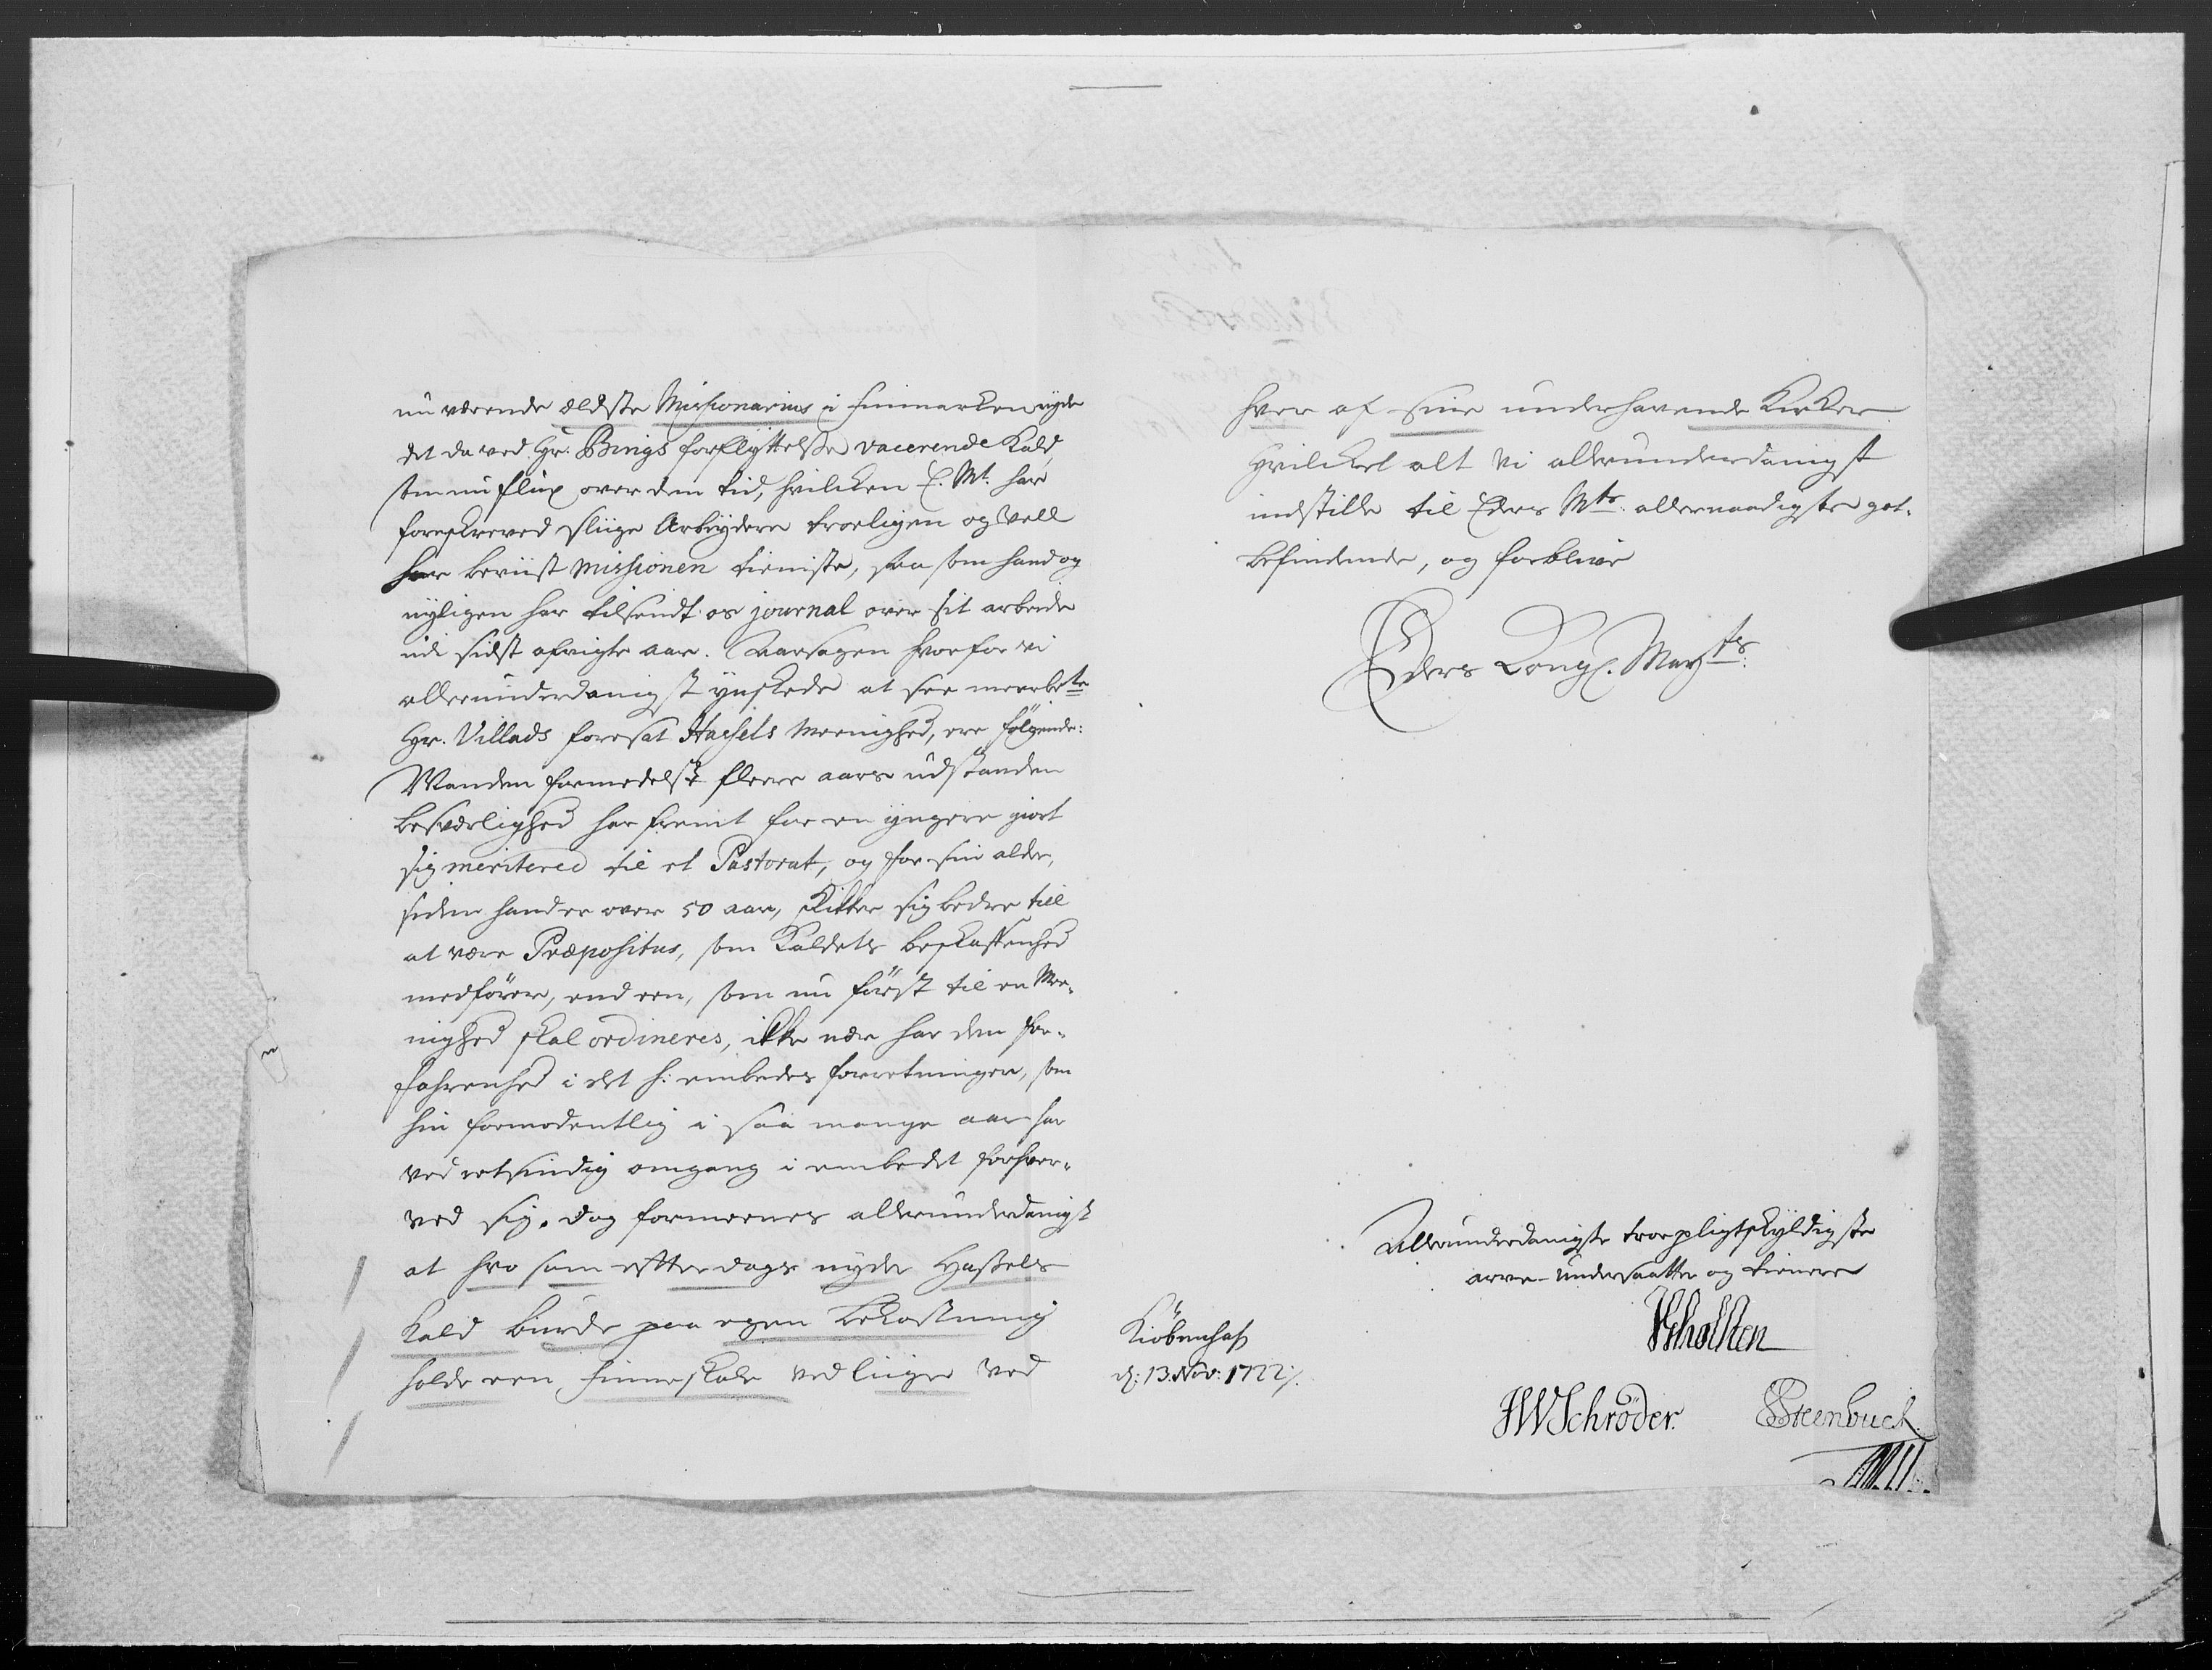 nu værende ældste Missionarius i Finmarken nyde
det da ved Hr: Bings forflyttelse vacerende Kald,
som nu flux over den tid, hvilcken E. Mt. har
foreskreved slige Arbeydere troeligen og vell
har beviist missionen tieniste, saa som hand og
nyligen har tilsendt os journal over sit arbeide
udi sidst afvigte aar. Aarsagen hvorfor vi
allerunderdanigst ynskede at see meerbete
Hr. Villads foresat Hassels Meenighed, ere følgende:
Manden formedelst fleere aars udstanden
besværlighed har fremt for en yngere giort
sig meritered til et Pastorat, og for sin alder,
siden hand er over 50 aar, skikker sig bedre till
at være Præpositus, som Kaldets beskaffenhed
medfører, end een, som nu først til en Mee-
nighed skal ordineres, ikke nær har den For-
fahrenhed i det h: embedes forretninger, som
hin formodentlig i saa mange aar har
ved retsindig omgang i embedet forhver-
ved sig. Dog formeenes allerunderdanigst
at hvo som efterdags nyder Hassels
Kald burde paa egen bekostning
holde een Finneskole ved lige ved
hver af sine underhavende Kirker.
Hvilcket alt vi allerunderdanigst
indstille til Eders Mts. allernaadigste got-
befindende, og forblive
Eders Kongl. Mayts:
Allerunderdanigste troepligtskyldigste
arve-undersaatter og tienere
JGholsten
Kiøbenhafn
d: 13. Nov: 1722/.
JWSchrøder. Steenbuch.